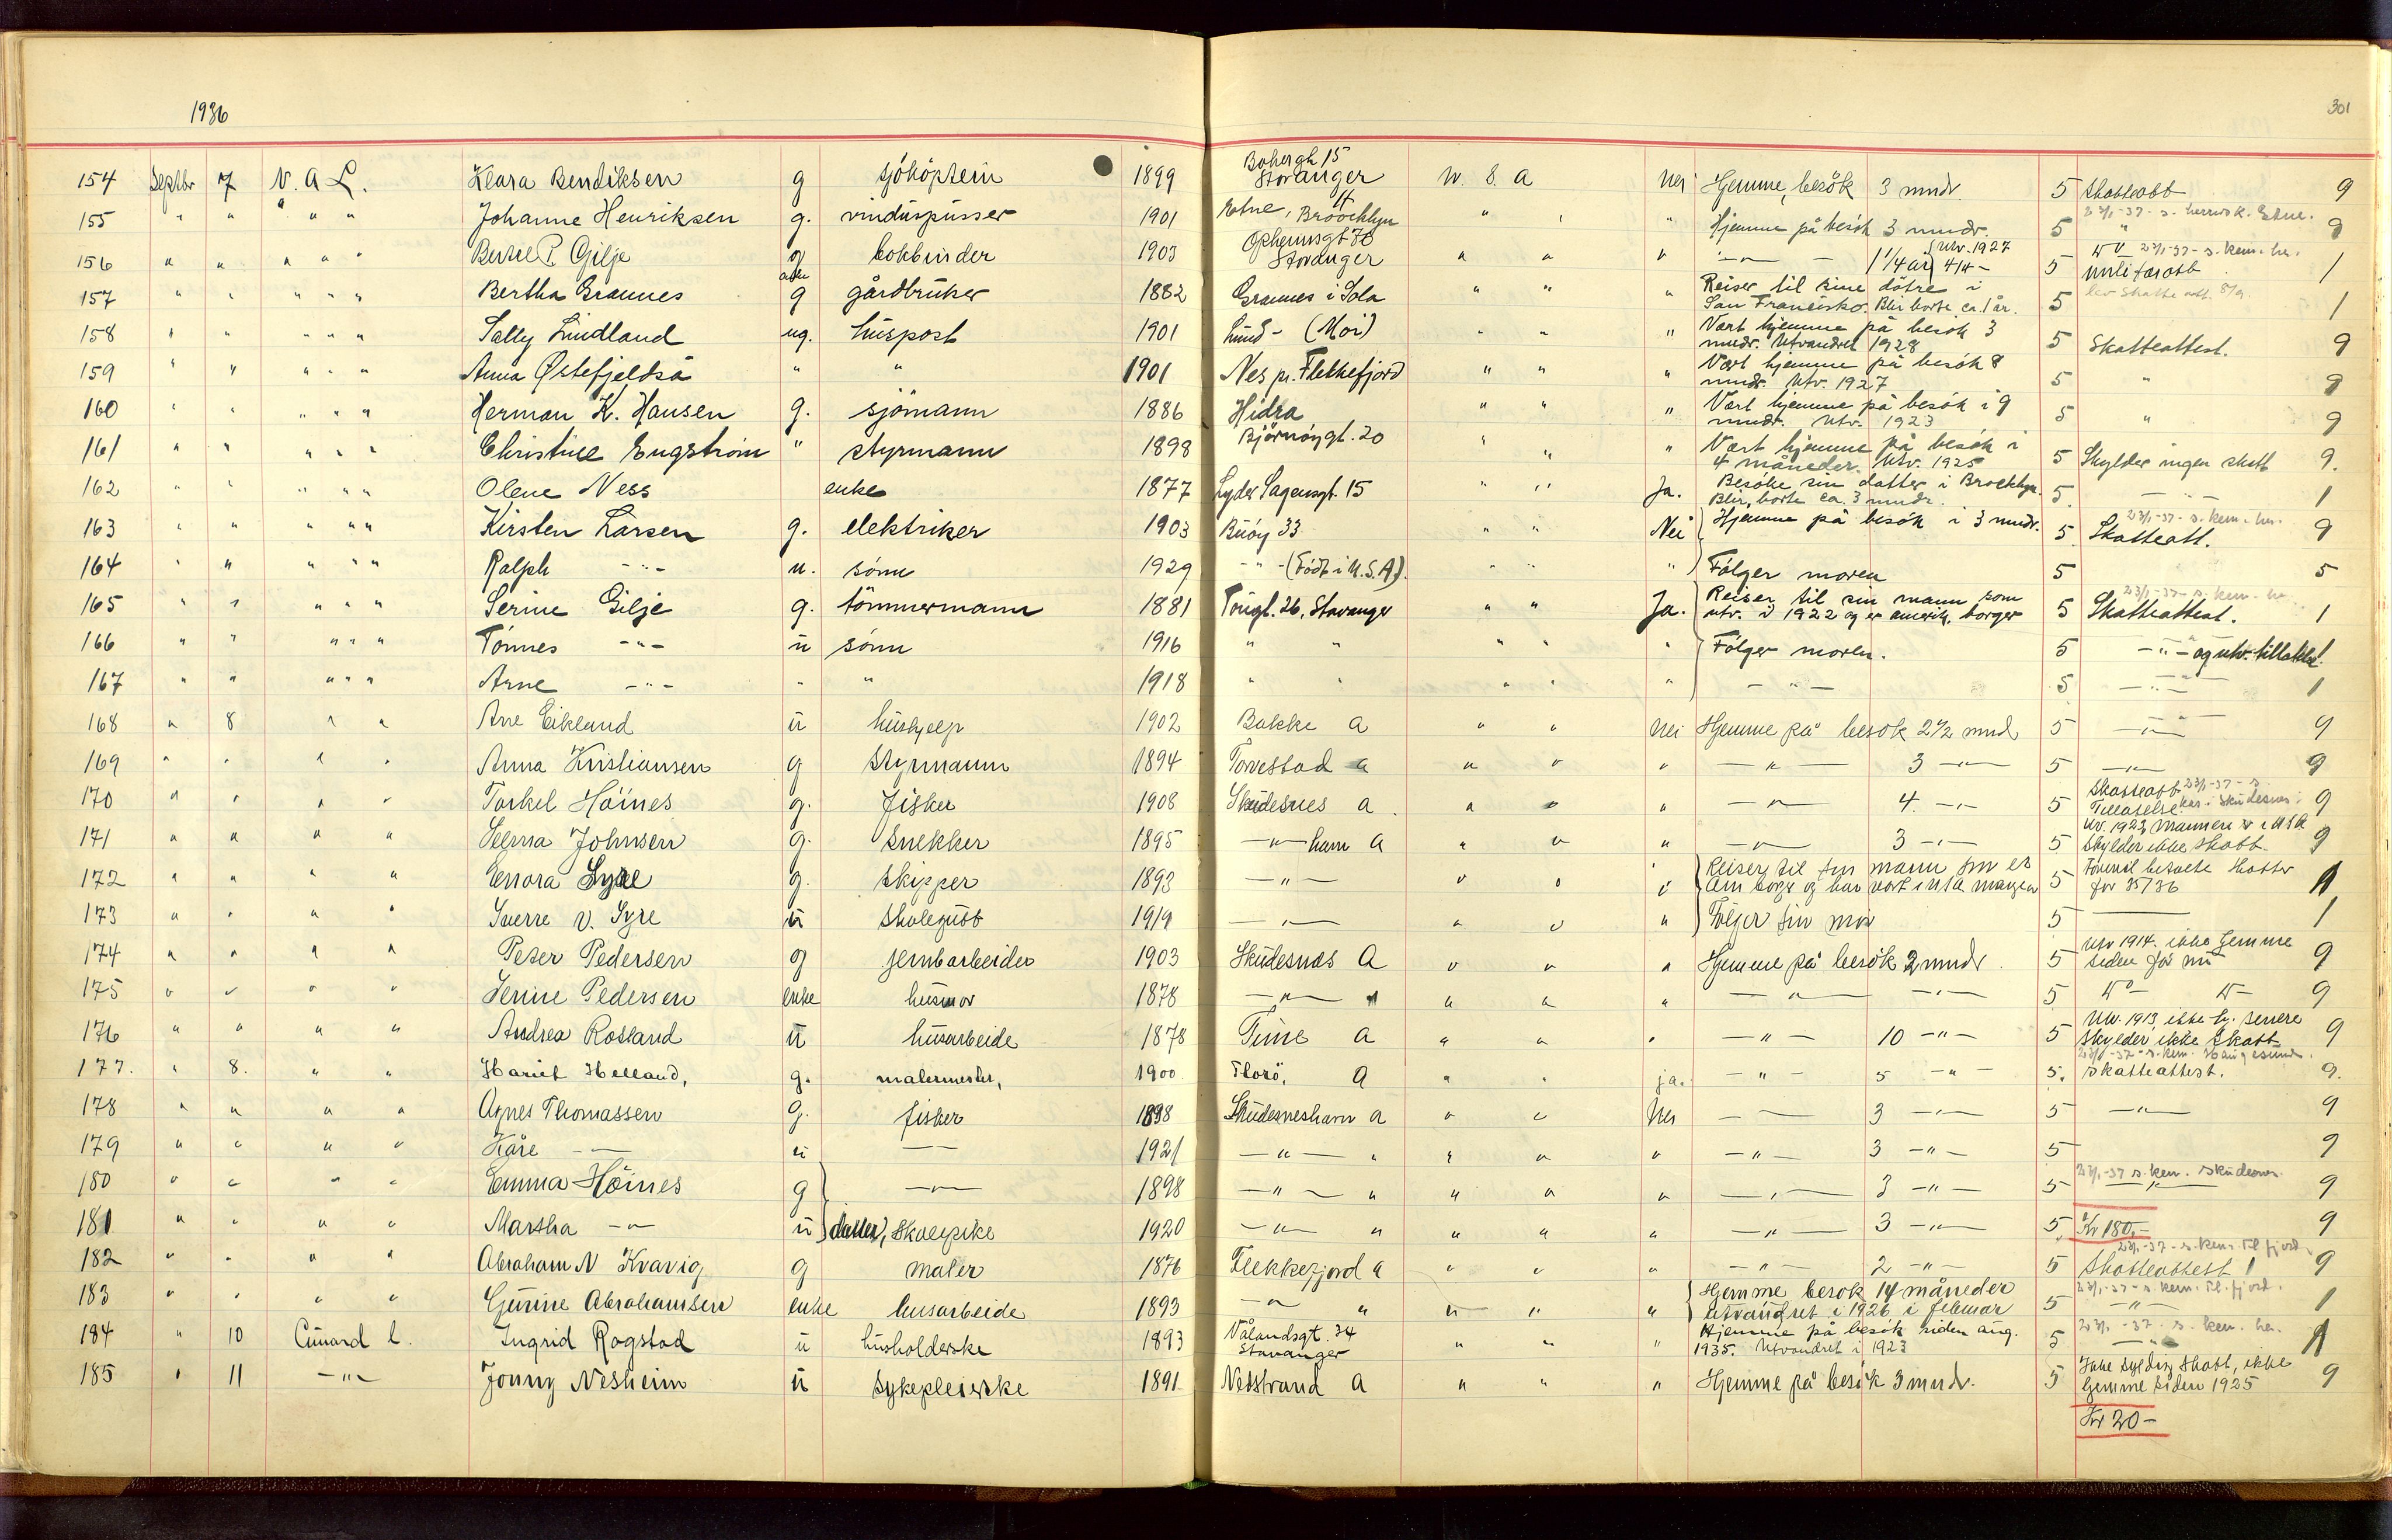 1936
301
154 Septbr 7 N. A L. Klara Bendiksen g sjökaptein 1899 Stavanger U. S. A Nei Hjemme, besök 3 mndr. 5 Skatteatt 9
155 " " " " " Johanne Henriksen g. vinduspusser 1901 Etne, Brooklyn " " " Hjemme på besök 3 mndr. 5 " 9
23/1-37 - s. herredsk. Etne.
156 " " " " " Bertel P. Gilje g bokbinder 1903 Stavanger " " " -"- - 1 1/4 år Utv. 1927 5 militæratt 1
157 " " " " " Bertha Grannes enke g gårdbruker 1882 Grannes i Sola " " " Reiser til sine dötre i
San Francisko. Blir borte ca. 1 år. 5 1
158 " " " " " Sally Lindland ug. huspost 1901 Lund - (Moi) " " " Vært hjemme på besök 3
mndr. Utvandret 1928 5 Skatteattest. 9
159 " " " " " Anna Østefjeldså " " 1901 Nes pr. Flekkefjord " " " Vært hjemme på besök 8
mndr. Utv. 1927 5 " 9
160 " " " " " Herman K. Hansen g. sjömann 1886 Hidra " " " Vært hjemme på besök i 9
mndr. Utv. 1923 5 " 9
161 " " " " " Christine Engström " styrmann 1898 Björnöygt. 20 " " " Vært hjemme på besök i
4 måneder. Utv. 1925 5 Skylder ingen skatt 9.
162 " " " " " Olene Ness enke 1877 Lyder Sagensgt. 15 " " Ja. Besöke sin datter i Brooklyn.
Blir borte ca. 3 mndr. 5. - " - 1
163 " " " " " Kirsten Larsen g. elektriker 1903 Buöy 33 " " Nei Hjemme på besök i 3 mndr. 5. Skatteatt. 9
23/1-37 - s. kem. her.
164 " " " " " Ralph -"- u. sönn 1929 -"- (Född i U.S.A). " " " Fölger moren 5 5
165 " " " " " Serine Gilje g. tömmermann 1881 Tougt. 26, Stavanger " " Ja. Reiser til sin mann som
utv. i 1922 og er amerik. borger 5 Skatteattest. 1
166 " " " " " Tönnes -"- u sönn 1916 " " " " " Fölger moren. 5 -"- og utv. tillatelse 1
167 " " " " " Arne -"- " " 1918 " " " " " -"- 5 -"- 1
168 " 8 " " Ane Eikeland u hushjelp 1902 Bakke A " " Nei Hjemme på besök 2 1/2 mnd 5 -"- 9
169 " " " " Anna Kristiansen g styrmann 1894 Torvestad A " " " -"- 3 -"- 5 -"- 9
170 " " " " Torkel Höines g. fisker 1908 Skudesnes A " " " -"- 4 -"- 5 Skatteatt
Tillatelse 9
171 " " " " Selma Johnsen g. snekker 1895 -"- havn A " " " -"- 3 -"- 5 Utv. 1923 Mannen er i USA
skylder ikke skatt 9
172 " " " " Enora Syre g. skipper 1893 -"- " " " Reiser til sin mann som er
am borger og har vært i USA mange år 5 betalte skatter
for 35/36 1
173 " " " " Sverre V. Syre u skolegutt 1919 -"- " " " Fölger sin mor 5 1
174 " " " " Peter Pedersen g jernarbeider 1903 Skudesnes A " " " Hjemme på besök 2 mndr. 5 Utv 1914. ikke hjemme
siden för nu 9
175 " " " " Serine Pedersen enke husmor 1878 -"- " " " " -"- -"- 5 9
176 " " " " Andrea Rosland u husarbeide 1878 Time A " " " -"- 10 -"- 5 Utv. 1913, ikke hj. senere
skylder ikke skatt 9
177. " 8. " " Hariet Helland, g. malermester, 1900 Florö, A " " ja. -"- 5 -"- 5. skatteattest. 9.
23/1-37 - s. kem. Haugesund.
178 " " " " Agnes Thomassen g. fisker 1898 Skudesneshavn A " " Nei -"- 3 -"- 5 -"- 9
179 " " " " Kåre -"- u -"- 1921 -"- " " " " -"- 3 -"- 5 9
180 " " " " Emma Höines g -"- 1898 -"- " " " " -"- 3 -"- 5 -"- 9
181 " " " " Martha -"- u datter, skolepike 1920 -"- " " " " -"- 3 -"- 5 Kr 180,- 9
182 " " " " Abraham N Kvavig g maler 1876 Flekkefjord A " " " -"- 2 -"- 5 Skatteattest 9
183 " " " " Gurine Abrahamsen enke husarbeide 1893 -"- " " " " Hjemme besök 14 måneder
utvandret i 1926 i februar 5 -"- 1
184 " 10 Cunard L. Ingrid Rogstad u husholderske 1893 Vålandsgt. 34
Stavanger " " " Hjemme på besök siden aug.
1935. Utvandret i 1923 5 -"- 1
185 " 11 -"- Jonny Nesheim u sykepleierske 1891 Nedstrand A " " " Hjemme på besök 3 mndr. 5 Ikke skyldig skatt, ikke
hjemme siden 1925 9
Kr 20-